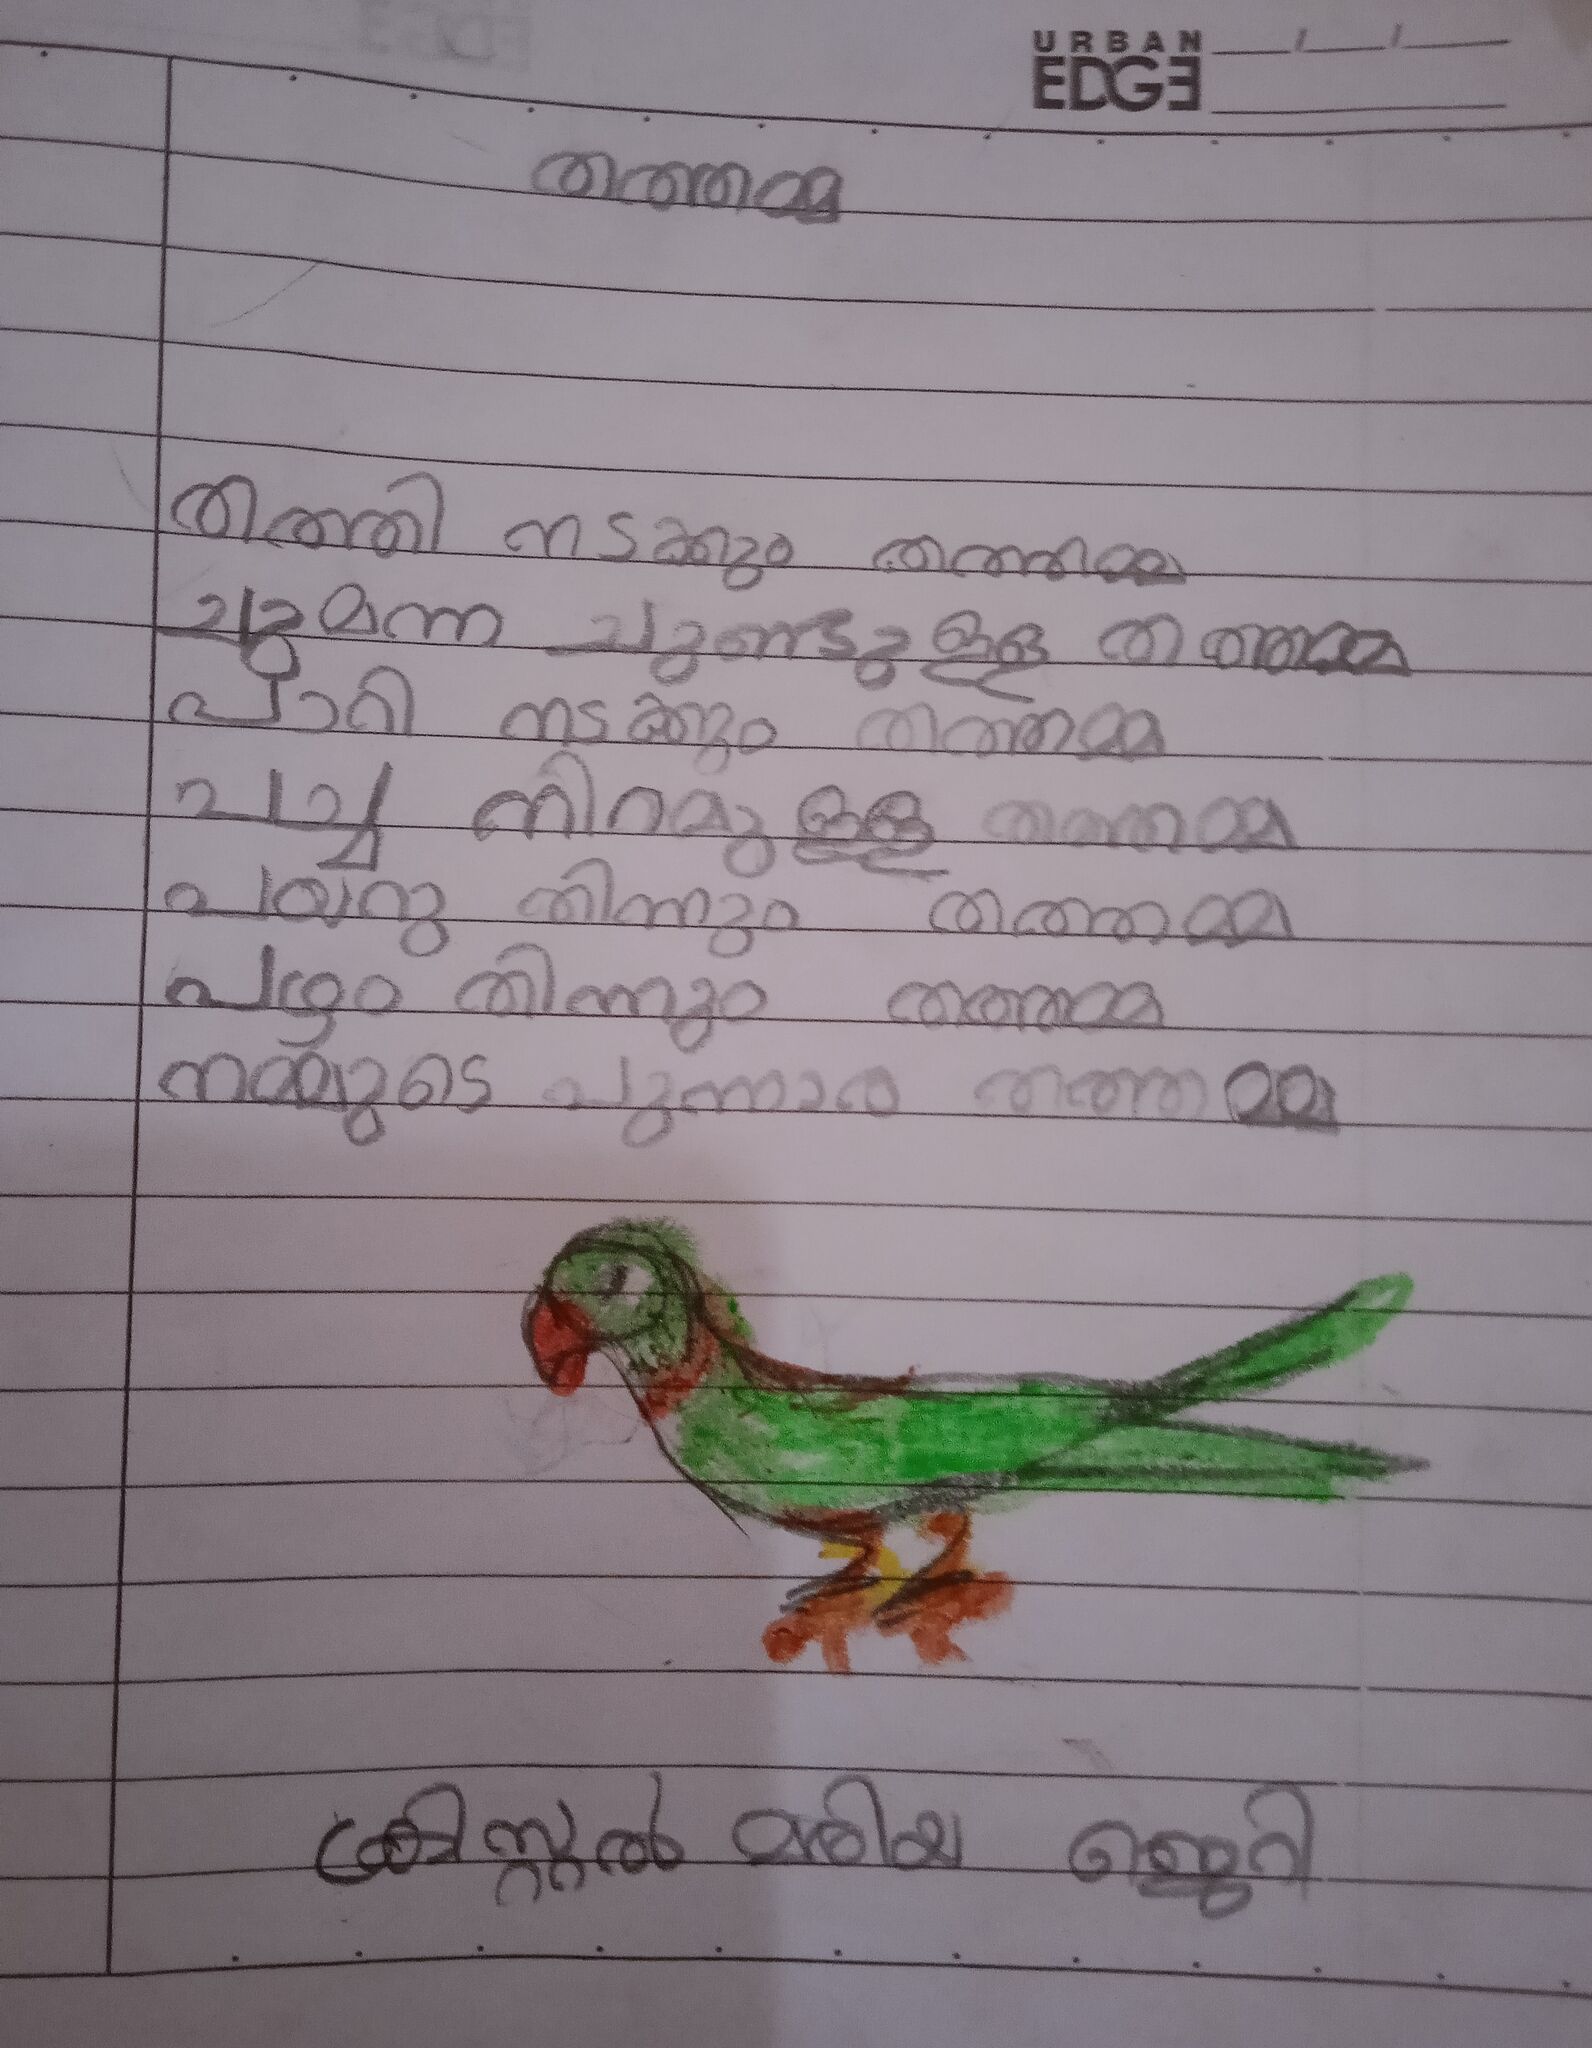 URBAN
EDGE
തത്തമ്മ
തത്തി നടക്കും തത്തമ്മ
ചുമന്ന ചുണ്ടുള്ള തത്തമ്മ
പാറി നടക്കും തത്തമ്മ
പച്ച നിറമുള്ള തത്തമ്മ
പയറു തിന്നും തത്തമ്മ
പഴം തിന്നും തത്തമ്മ
നമ്മുടെ പുന്നാര തത്തമ്മ
ക്രിസ്റ്റൽ മരിയ ജെറി